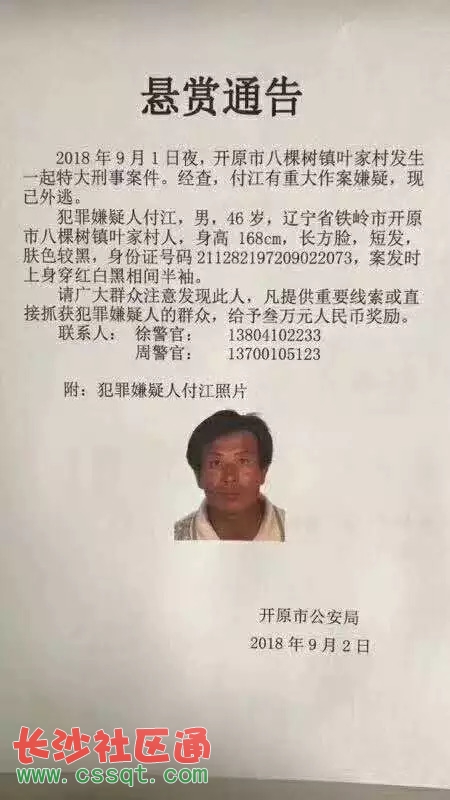 悬赏通告
2018年9月1日夜，开原市八棵树镇叶家村发生
一起特大刑事案件。经查，付江有重大作案嫌疑，现
已外逃。
犯罪嫌疑人付江，男，46岁，辽宁省铁岭市开原
市八棵树镇叶家村人，身高 168cm，长方脸，短发，
肤色较黑，身份证号码 211282197209022073，案发时
上身穿红白黑相间半袖。
请广大群众注意发现此人，凡提供重要线索或直
接抓获犯罪嫌疑人的群众，给予叁万元人民币奖励。
联系人： 徐警官： 13804102233
周警官： 13700105123
附：犯罪嫌疑人付江照片
开原市公安局
2018年9月2日
长沙社区通
www.cssqt.com